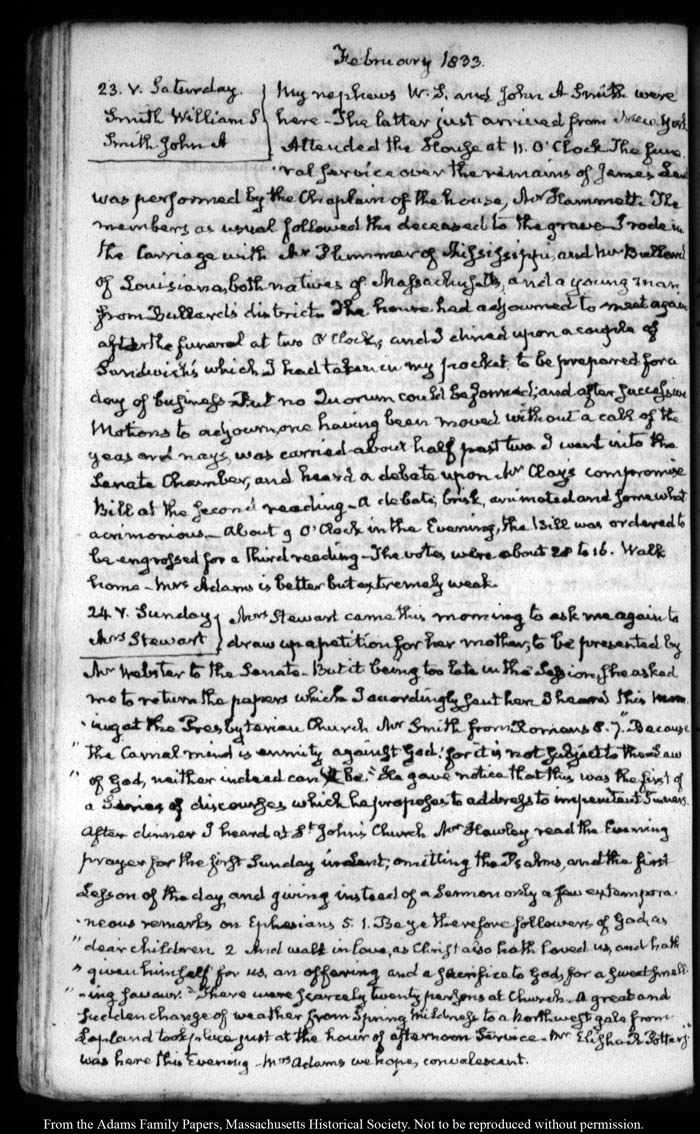 February 1833.
23. V. Saturday. My nephews W. S. and John A Smith were
Smith William S here - The latter just arrived from New York
Smith John A Attended the House at 11. O'Clock. The fune
ral service over the remains of James Lent
was performed by the Chaplain of the house, Mr Hammett. The
members as usual followed the deceased to the grave. I rode in
the Carriage with Mr Plummer of Mississippi, and Mr Bullard
of Louisiana, both natives of Massachusetts, and a young man
from Bullard's district. The house had adjourned to meet again
after the funeral at two O'Clock, and I dined upon a couple of
Sandwich's which I had taken in my pocket to be prepared for a
day of business. But no Quorum could be formed; and after successive
Motions to adjourn, one having been moved without a call of the
yeas and nays, was carried about half past two I went into the
Senate Chamber, and heard a debate upon Mr Clay's compromise
Bill at the second reading - A debate, brisk, animated and somewhat
acrimonious - About 9 O'Clock in the Evening, the Bill was ordered to
be engrossed for a third reading - The votes were about 28 to 16. Walk
home - Mrs Adams is better but extremely weak.
24 V. Sunday Mrs Stewart came this morning to ask me again to
Mrs Stewart draw up a petition for her mother, to be presented by
Mr Webster to the Senate - But it being too late in the Session, she asked
me to return the papers which I accordingly sent her. I heard this morn
ing at the Presbyterian Church Mr Smith from Romans 8. 7. "Because
" the Carnal mind is enmity against God: for it is not subject to the Law
" of God, neither indeed can be." He gave notice that this was the first of
a Series of discourses which he proposes to address to impenitent Sinners.
After dinner I heard at St John's Church Mr Hawley read the Evening
prayer for the first Sunday in Lent; omitting the Psalms, and the first
Lesson of the day, and giving instead of a Sermon only a few extempora-
-neous remarks on Ephesians 5. 1. Be ye therefore followers of God, as
" dear children 2 And walk in love, as Christ also hath loved us, and hath
" given himself for us, an offering and a sacrifice to God, for a sweet smell-
" -ing savour." There were scarcely twenty persons at Church. A great and
sudden change of weather from Spring mildness to a Northwest gale from
Lapland took place just at the hour of afternoon Service - Mr Elisha R Potter
was here this Evening - Mrs Adams we hope, convalescent.
From the Adams Family Papers, Massachusetts Historical Society. Not to be reproduced without permission.